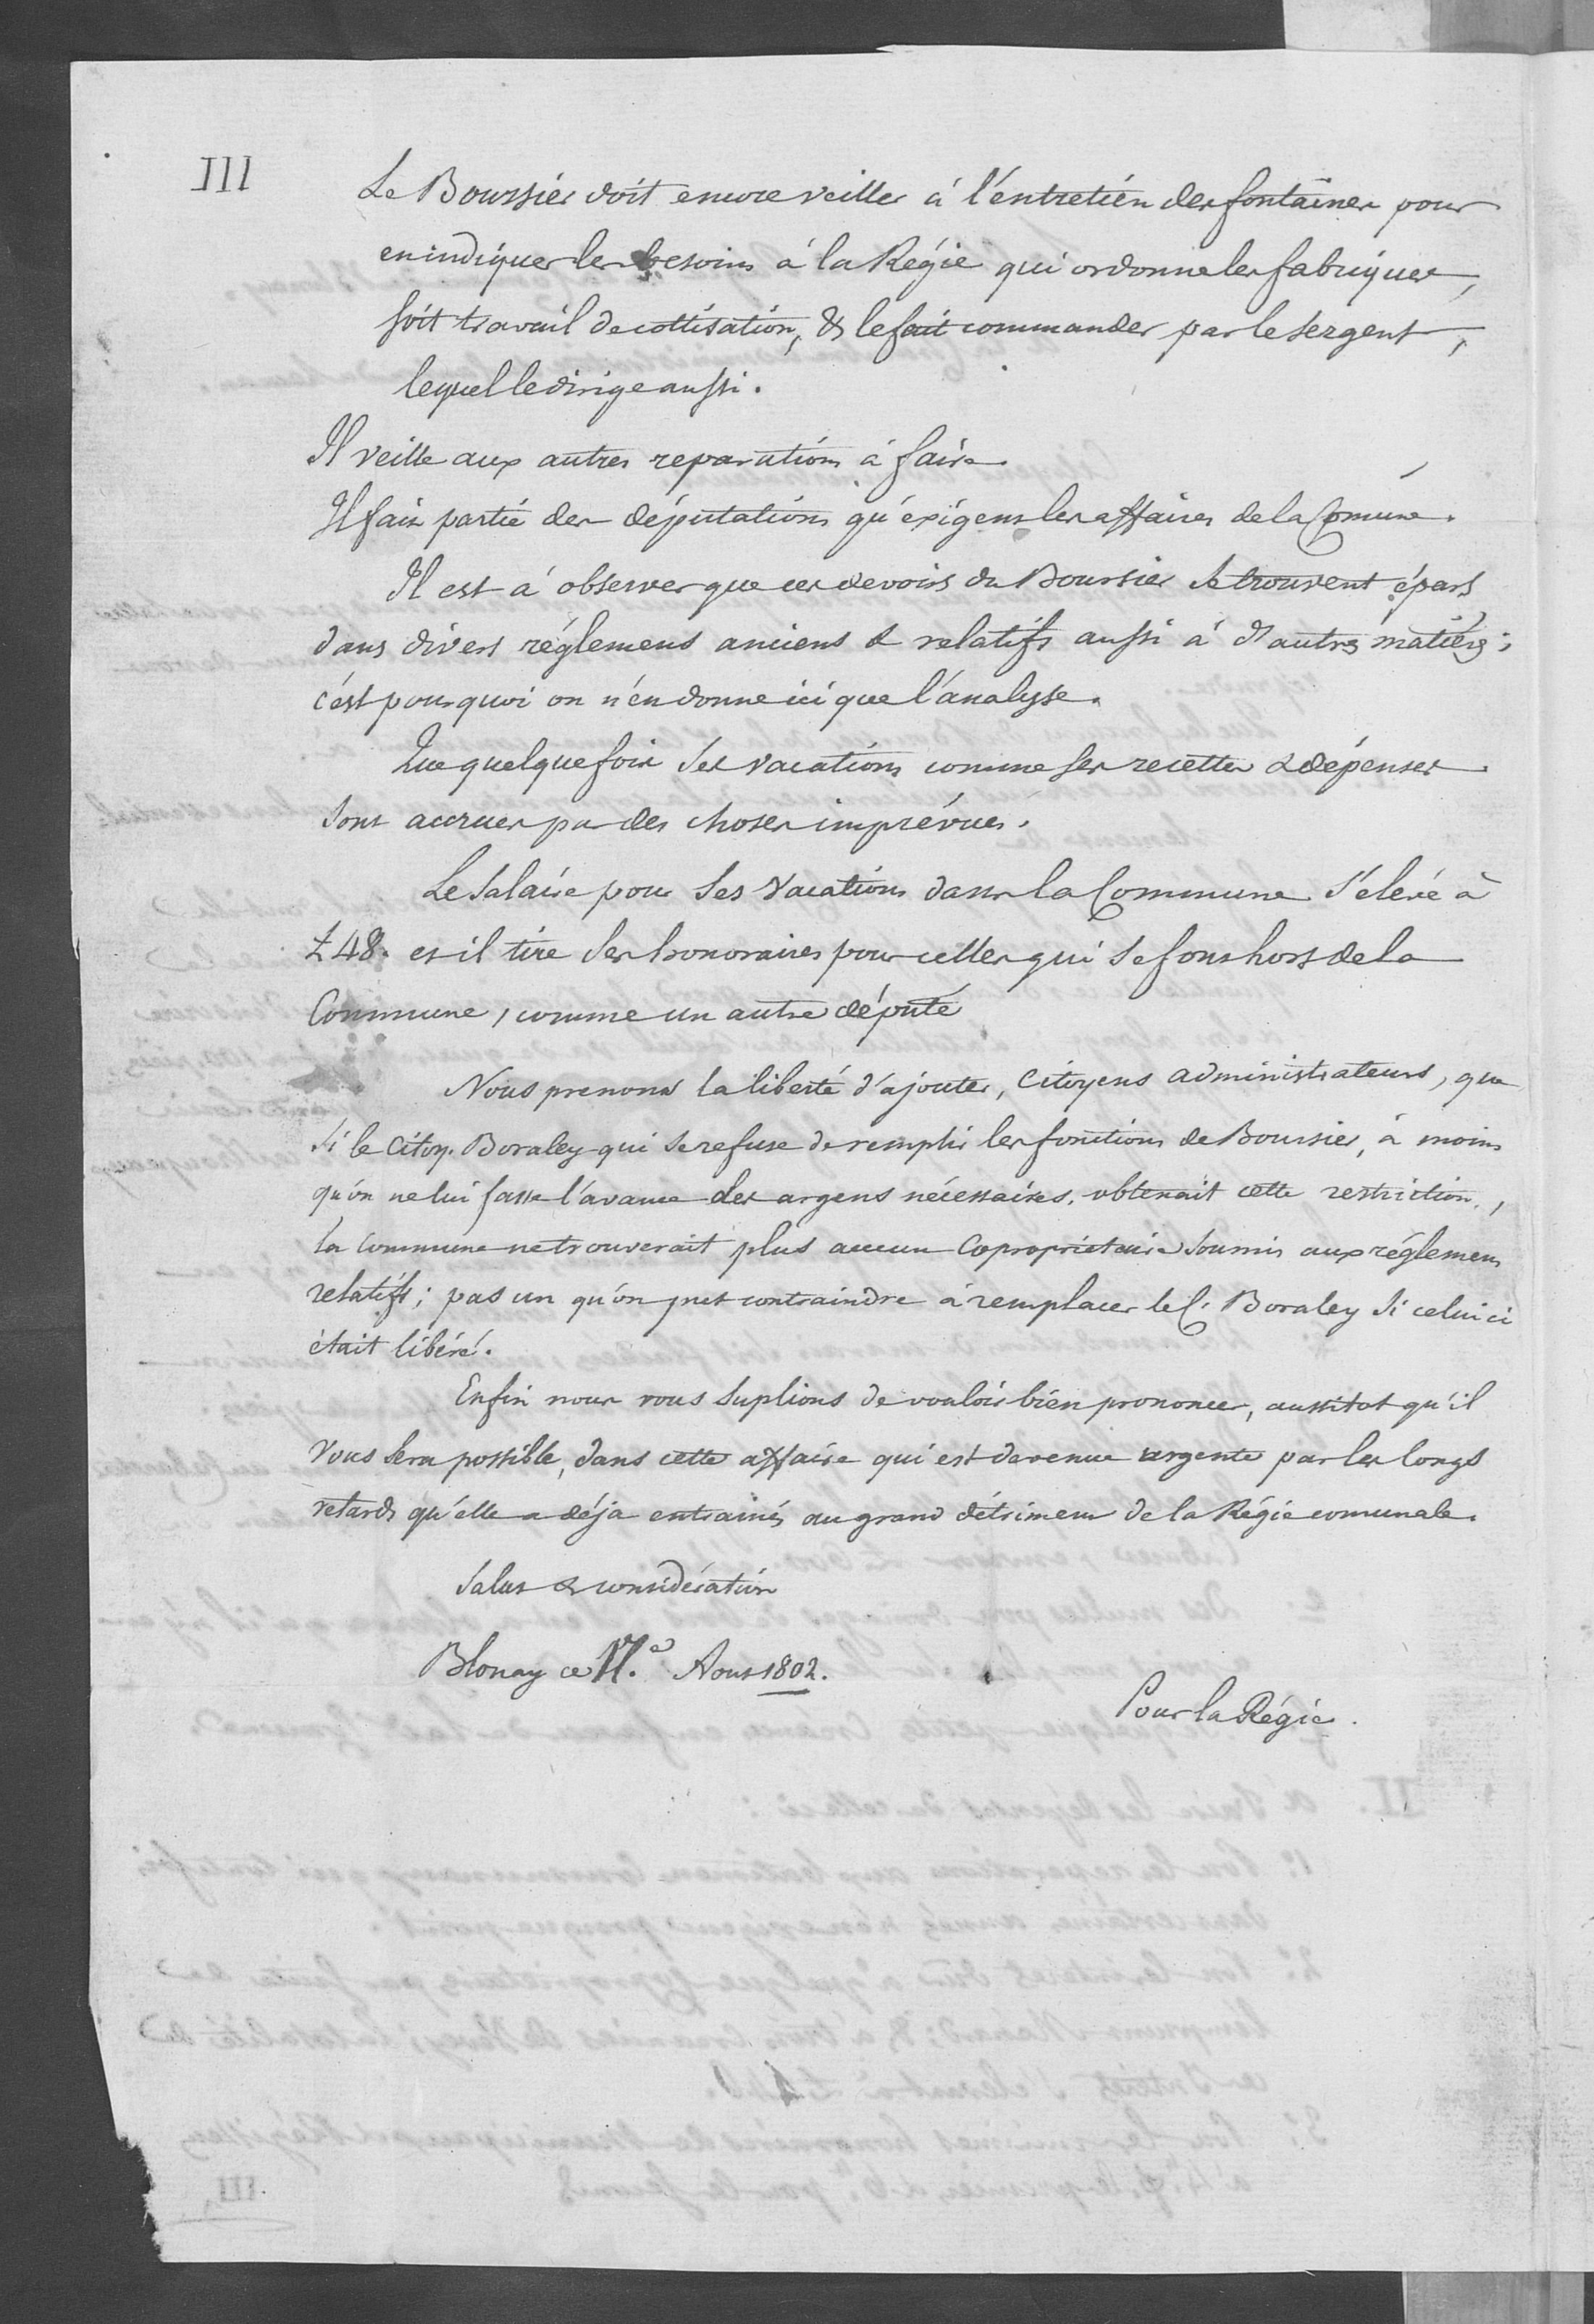 III
Le Boursier doit encore veiller à l'entretien des fontaines pour
en indiquer les besoins à la Régie qui ordonne les fabriques,
soit travail de cottisation, & le fait commander par le sergent,
lequel le dirige aussi.
Il veille aux autres reparations à faire.
Il fait partie des députations qu'exigent les affaires de la Comune.
Il est à observer que ces devoirs du Boursier se trouvent épars
dans divers réglemens anciens & relatifs aussi à d'autres matières;
c'est pourquoi on n'en donne ici que l'analyse.
Que quelque fois ses vacations comme ses recettes & dépenses
sont accrues par des choses imprévues.
Le Salaire pour ses vacations dans la Commune s'élevé à
£ 48. et il tire des honoraires pour celles qui se font hors de la
Commune, comme un autre député
Nous prenons la liberté d'ajouter, citoyens administrateurs, que
si le Citoy. Boraley qui se refuse de remplir les fonctions de Boursier, à moins
qu'on ne lui fasse l'avance des argens nécessaires, obtenait cette restriction,
la Commune ne trouverait plus aucun Copropriétaire soumis aux réglemens
relatifs; pas un qu'on put contraindre à remplacer le C. Boraley si celui ci
était libéré.
Enfin nous vous suplions de vouloir bien prononcer, aussitot qu'il
vous sera possible, dans cette affaire qui est devenue urgente par les longs
retards qu'elle a déja entrainés au grand détriment de la Régie comunale.
Salut & considération
Blonay ce Aout 1802.
Pour la Régie.